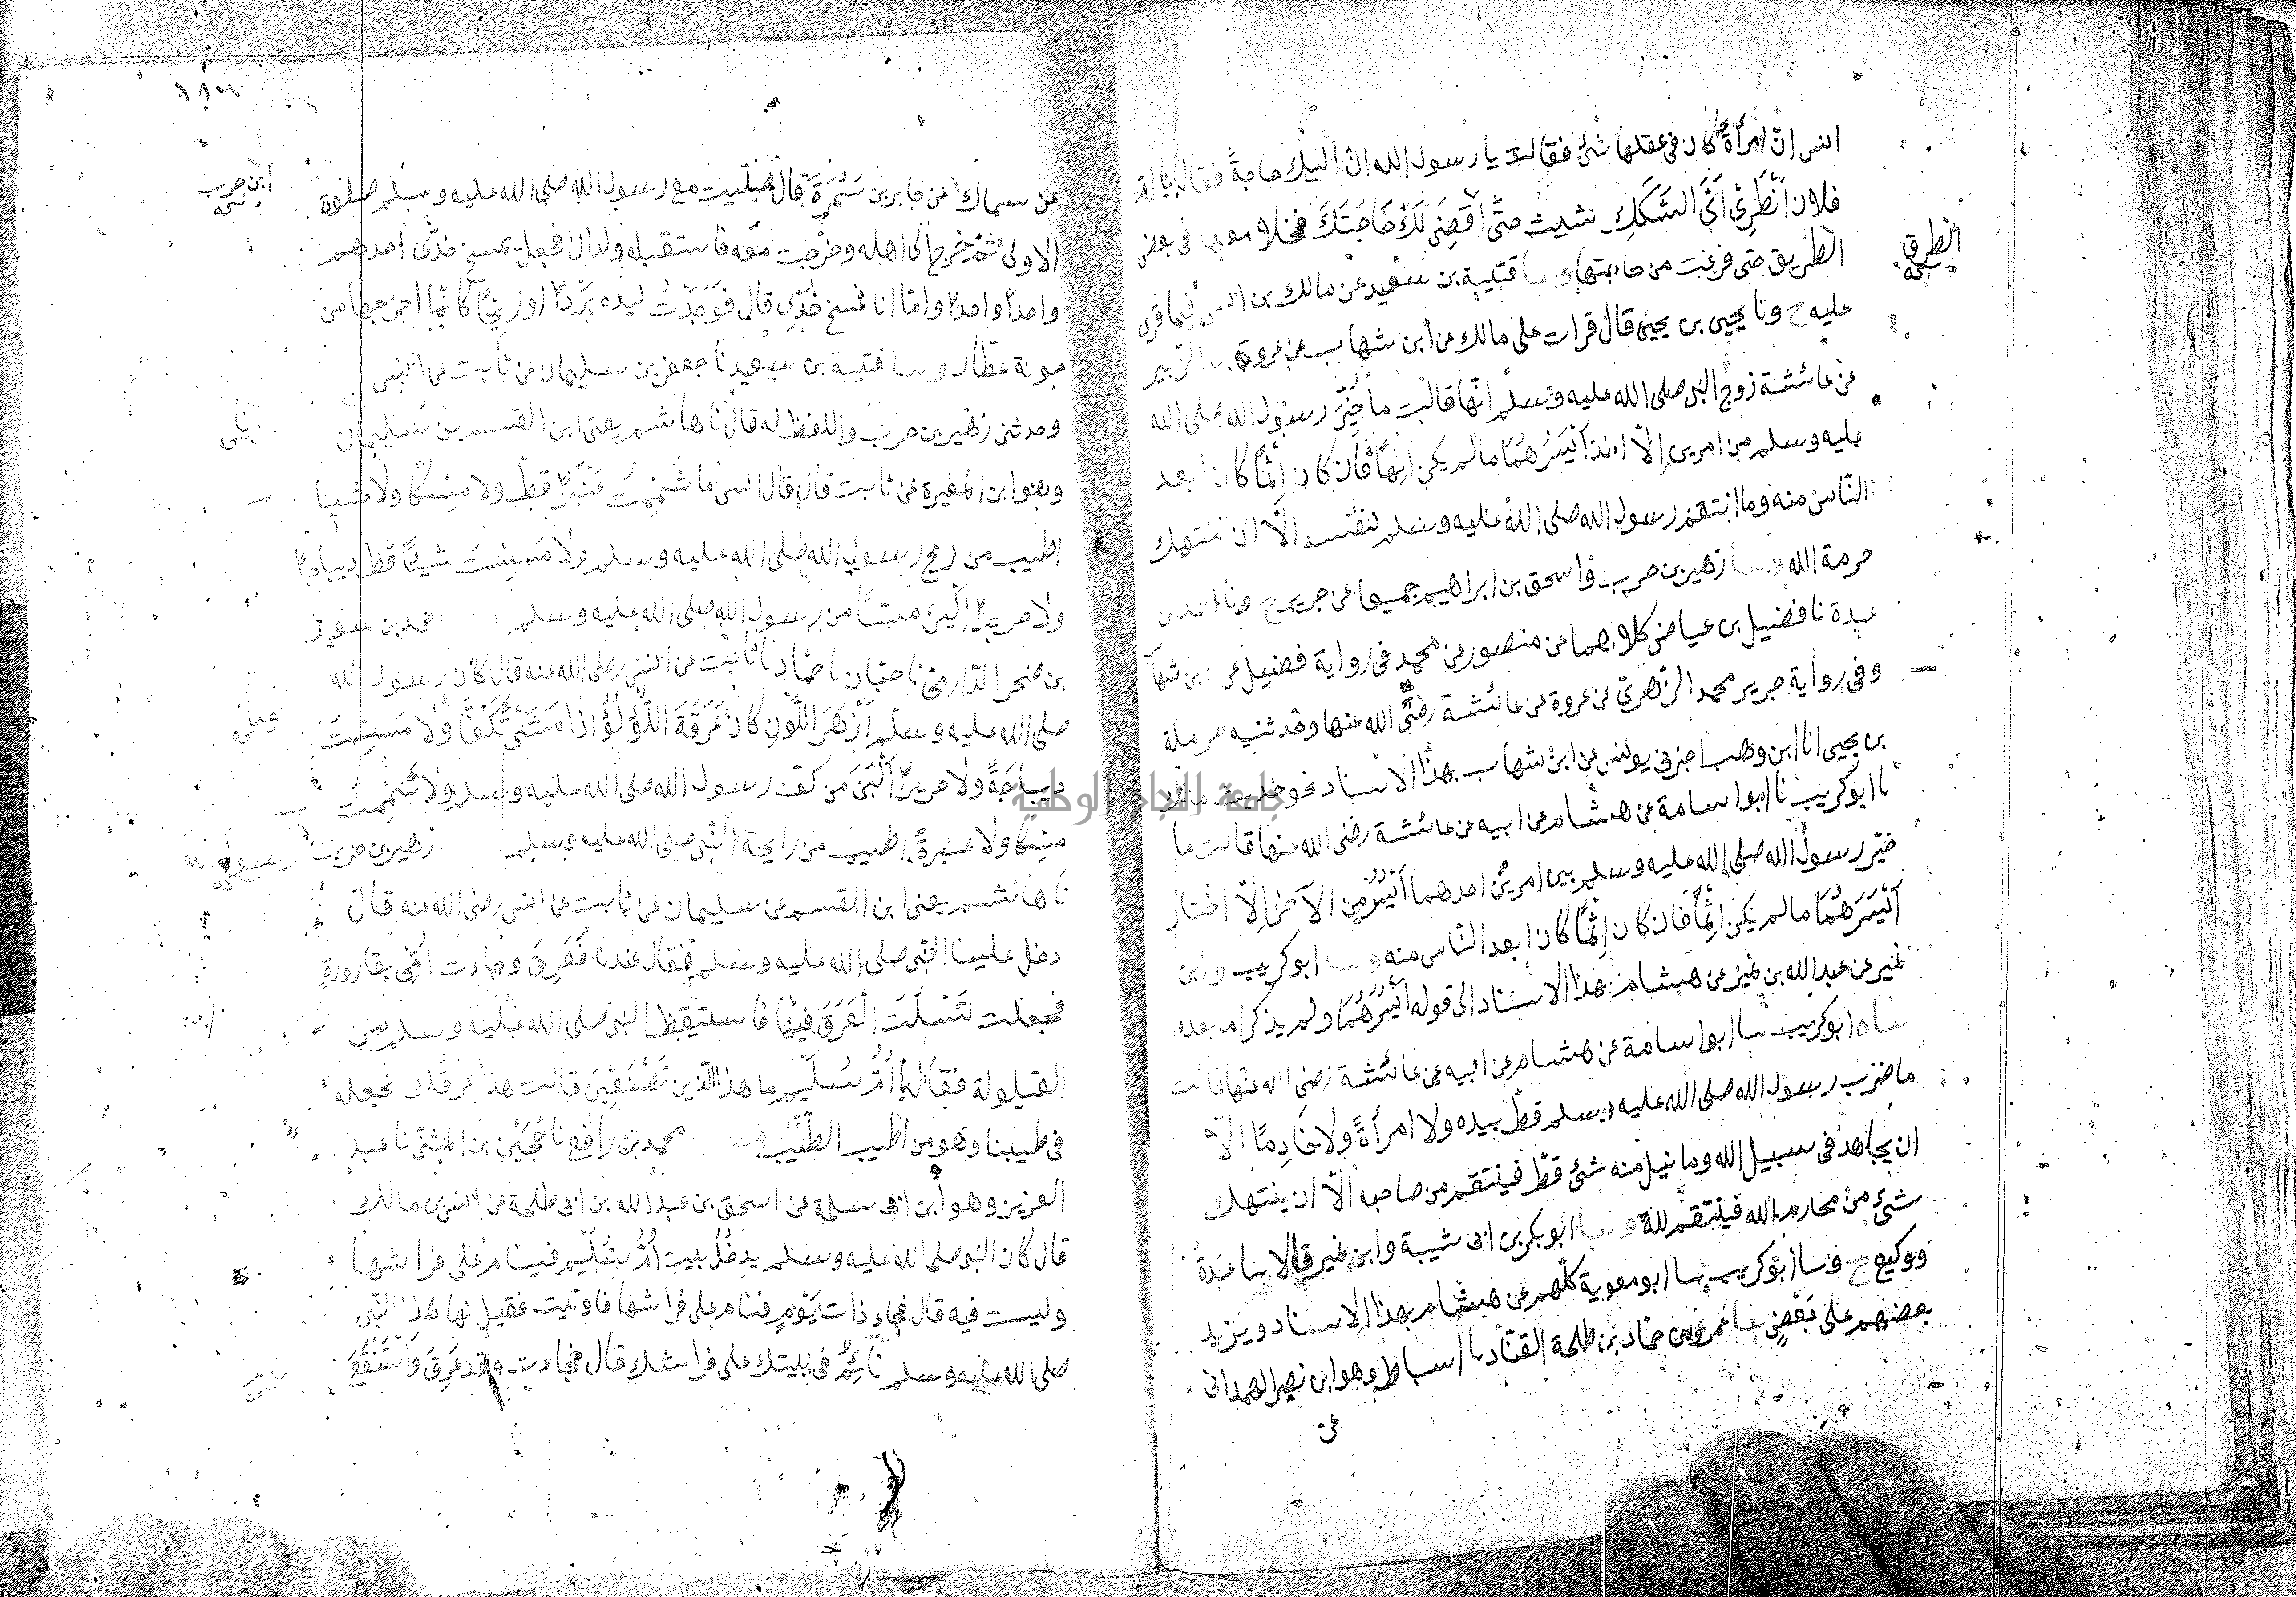 انس ان امرأة كان فى عقلها شئ فقالت يا رسول الله ان لى اليك حاجة فقال يا ام
فلان انظرى اى السكك شيت حتى اقضى لك حاجتك فخلا معها فى بعض
الطرق
الطريق حتى فرغت من حاجتها وسا قتيبة بن سعيد عن مالك بن انس فيما قرى
عليه ح ونا يحيى بن يحيى قال قرات على مالك عن ابن شهاب عن عروة بن الزبير
عن عائشة زوج النبى صلى الله عليه وسلم انها قالت ما خير رسول الله صلى الله
عليه وسلم من امرين الا اخذ ايسرهما ما لم يكن اثما فان كان اثما كان ابعد
الناس منه وما انتقم رسول الله صلى الله عليه وسلم لنفسه الا ان تنتهك
حرمة الله وسا زهير بن حرب واسحق بن ابراهيم جميعا عن جرير ح ونا احمد بن
عبدة نا فضيل بن عياض كلاهما عن منصور عن محمد فى رواية فضيل عن ابن شهاب
وفى رواية جرير محمد الزهرى عن عروة عن عائشة رضى الله عنها وحدثنيه حرملة
بن يحيى انا ابن وهب اخبرنى يونس عن ابن شهاب بهذا الاسناد نحو حديث مالك
نا ابو كريب نا ابو اسامة عن هشام عن ابيه عن عائشة رضى الله عنها قالت ما
خير رسول الله صلى الله عليه وسلم بين امرين احدهما ايسر من الآخر الا اختار
ايسرهما ما لم يكن اثما فان كان اثما كان ابعد الناس منه وسا ابو كريب وابن
نمير عن عبد الله بن نمير عن هشام بهذا الاسناد الى قوله ايسرهما ولم يذكرا ما بعده
ساه ابو كريب سا ابو اسامة عن هشام عن ابيه عن عائشة رضى الله عنها قالت
ما ضرب رسول الله صلى الله عليه وسلم قط بيده ولا امرأة ولا خادما الا
ان يجاهد فى سبيل الله وما نيل منه شئ قط فينتقم من صاحبه الا ان ينتهك
شئ من محارم الله فينتقم لله وسا ابو بكر بن ابى شيبة وابن نمير قالا سا عبدة
ووكيع ح وسا ابو كريب سا ابو معوية كلهم عن هشام بهذا الاسناد ويزيد
بعضهم على بعض سا عمرو بن حماد بن طلحة القناد نا اسباط وهو ابن نصر الهمدانى
عن
١٨٣
ابن حرب
عن سماك عن جابر بن سمرة قال صليت مع رسول الله صلى الله عليه وسلم صلوة
الاولى ثم خرج الى اهله وخرجت معه فاستقبله ولدان فجعل يمسح خدى احدهم
واحدا واحدا واما انا فمسح خدى قال فوجدت ليده بردا او ريحا كانما اخرجها من
جونة عطار وسا قتيبة بن سعيد نا جعفر بن سليمان عن ثابت عن انس
وحدثنى زهير بن حرب واللفظ له قال نا هاشم يعنى ابن القسم عن سليمان
وهو ابن المغيرة عن ثابت قال قال انس ما شممت عنبرا قط ولا مسكا ولا شيا
اطيب من ريح رسول الله صلى الله عليه وسلم ولا مسست شيئا قط ديباجا
ولا حريرا الين مسا من رسول الله صلى الله عليه وسلم احمد بن سعيد
بن صخر الدارمى نا حبان نا حماد نا ثابت عن انس رضى الله عنه قال كان رسول الله
صلى الله عليه وسلم ازهر اللون كان عرقه اللؤلؤ اذا مشى تكفا ولا مسست
وما
ديباجة ولا حريرا الين من كف رسول الله صلى الله عليه وسلم ولا شممت
مسكا ولا عنبرة اطيب من رايحة النبى صلى الله عليه وسلم زهير بن حرب
نا هاشم يعنى ابن القسم عن سليمان عن ثابت عن انس رضى الله عنه قال
دخل علينا النبى صلى الله عليه وسلم فقال عندنا فعرق وجاءت امى بقارورة
فجعلت تسلت العرق فيها فاستيقظ النبى صلى الله عليه وسلم من
القيلولة فقال يا ام سليم ما هذا الذين تصنعين قالت هذا عرقك نجعله
فى طيبنا وهو من اطيب الطيب محمد بن رافع نا حجين بن المثنى نا عبد
العزيز وهو ابن ابى سلمة عن اسحق بن عبد الله بن ابى طلحة عن انس بن مالك
قال كان النبى صلى الله عليه وسلم يدخل بيت ام سليم فينام على فراشها
وليست فيه قال فجاء ذات يوم فنام على فراشها فاوتيت فقيل لها هذا النبى
صلى الله عليه وسلم نائم فى بيتك على فراشك قال فجاءت وقد عرق واستنقع
جامعة النجاح الوطنية